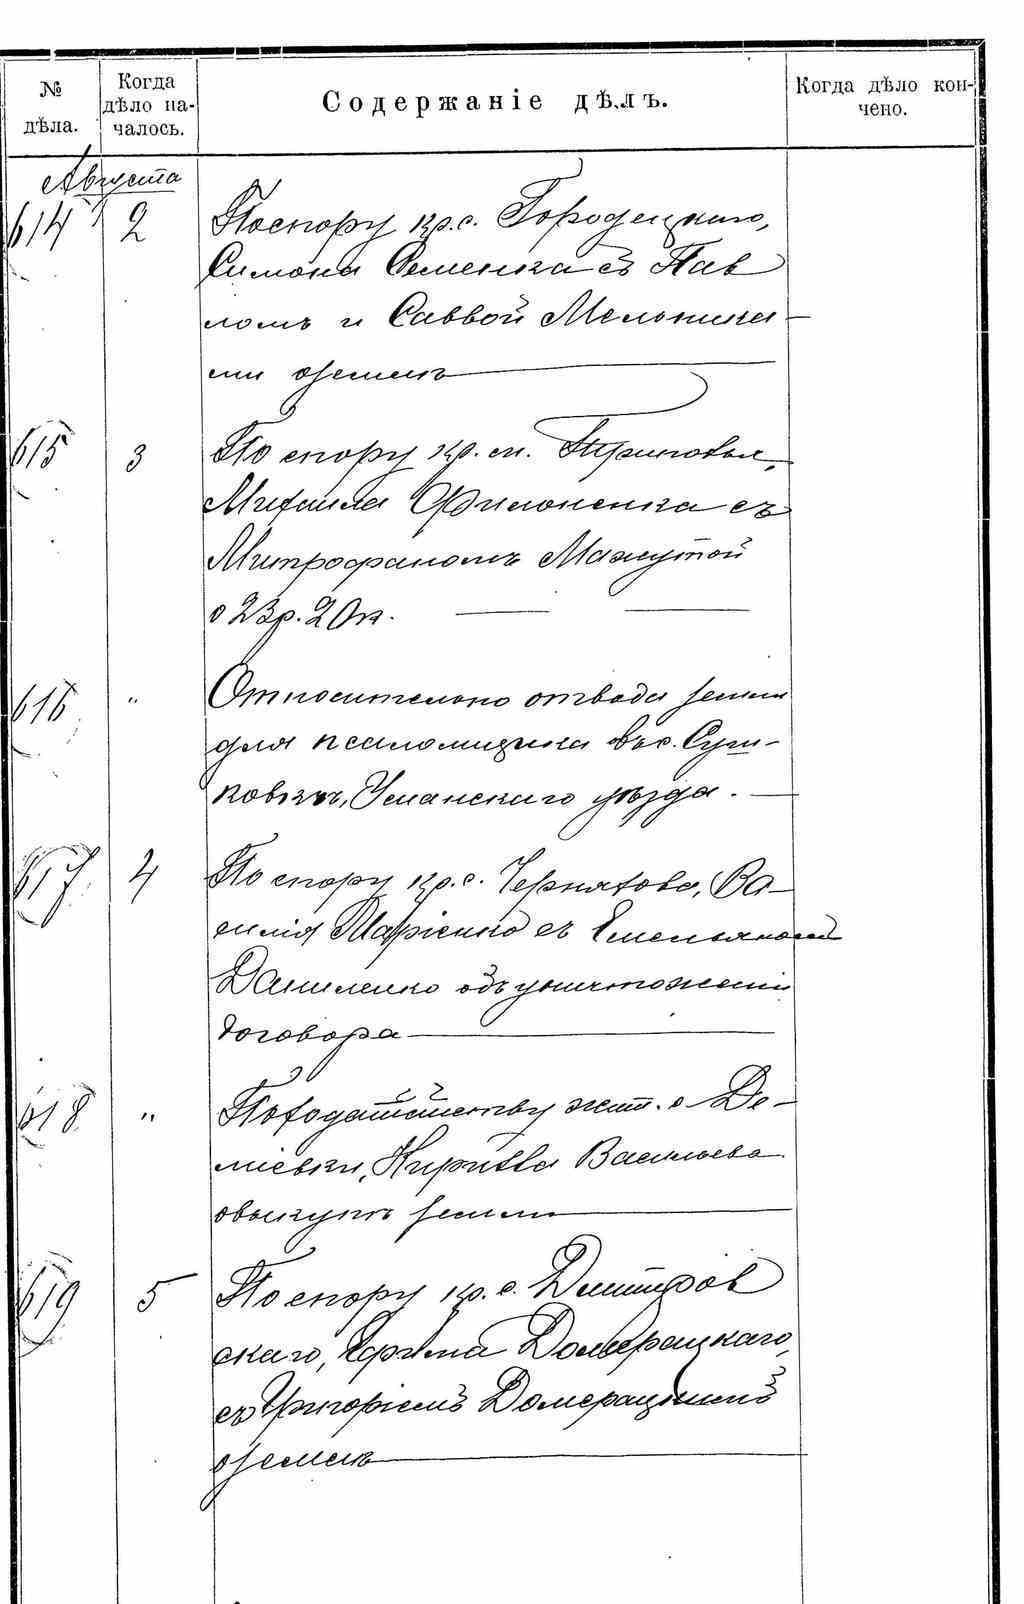 № дѣла.
Когда дѣло началось.
Содержаніе дѣлъ.
Когда дѣло кончено.
Августа
614 2 По спору кр. с. Городецкаго,
Симона Семенка съ Пав
ломъ и Саввой Мельника-
ми о землѣ
615 3 По спору кр. м.
Михаила Филоненка съ
Митрофаномъ Мажутой
о 23 р. 20 к.
616 " Относительно отвода земли
для псаломщика въ с. Суш-
ковкѣ, Уманскаго уѣзда.
617 4 По спору кр. с. Чернятова, Ва-
силія Марченко съ Емельяномъ
Даниленко объ уничтоженіи
договора
618 " По ходатайству жит. с. Де-
міевки, Кирилла Васильева
о выкупѣ земли
619 5 По спору кр. с. Дмитров
скаго, Ефима Домерацкаго,
съ Григоріемъ Домерацкимъ
о землѣ